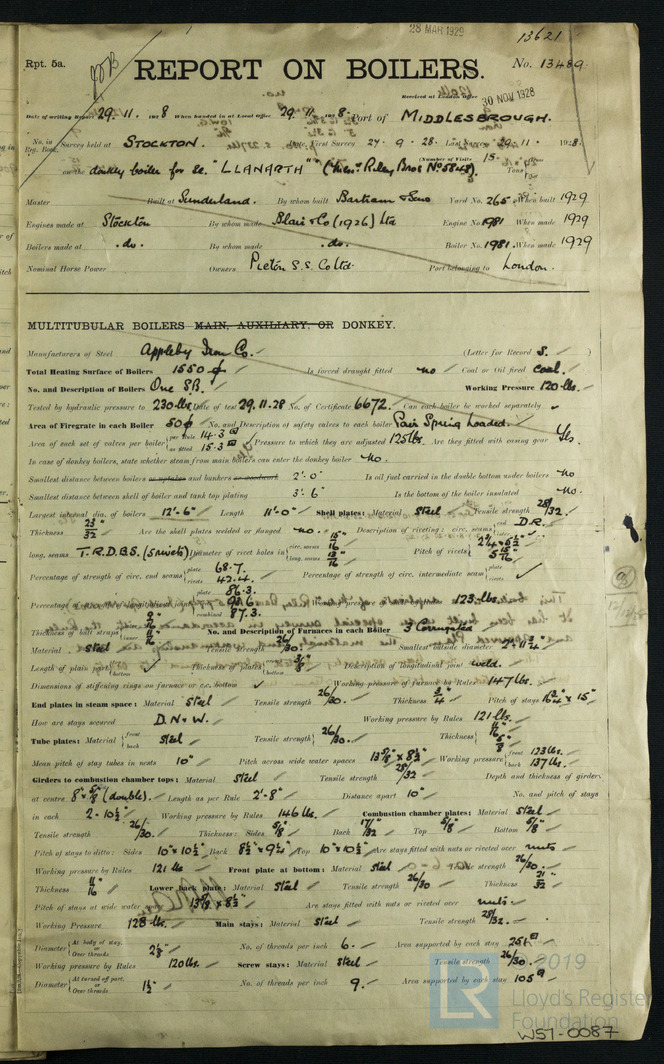 28 MAR 1929
13621
Rpt. 5a.
REPORT ON BOILERS.
No. 13489
Received at London Office
30 NOV 1928
Date of writing Report 29. 11. 1928 When handed in at Local Office 29. 11. 1928. Port of MIDDLESBROUGH.
No. in Reg. Book. Survey held at STOCKTON. First Survey 27-9-28. Last 29.11. 1928
(Number of Visits 15.)
on the donkey boiler for se. "LLANARTH" (Messrs. Riley Bros No 5848). Tons
Master Built at Sunderland. By whom built Bartram & Sons Yard No. 265 When built 1929
Engines made at Stockton By whom made Blair & Co (1926) Ltd Engine No 1981 When made 1929
Boilers made at . do. By whom made . do. Boiler No. 1981. When made 1929
Nominal Horse Power Owners Picton S.S. Co Ltd. Port belonging to London.
MULTITUBULAR BOILERS MAIN, AUXILIARY, OR DONKEY.
Manufacturers of Steel Appleby Iron Co. (Letter for Record S. )
Total Heating Surface of Boilers 1550 Is forced draught fitted no Coal or Oil fired coal.
No. and Description of Boilers One S.B. Working Pressure 120 lbs.
Tested by hydraulic pressure to 230 lbs Date of test 29.11.28 No. of Certificate 6672. Can each boiler be worked separately
Area of Firegrate in each Boiler 50 No. and Description of safety valves to each boiler Pair Spring Loaded.
Area of each set of valves per boiler per Rule 14.3 as fitted 15.3 Pressure to which they are adjusted 125 lbs. Are they fitted with easing gear Yes.
In case of donkey boilers, state whether steam from main boilers can enter the donkey boiler no.
Smallest distance between boilers or uptakes and bunkers or woodwork 2'-0" Is oil fuel carried in the double bottom under boilers no
Smallest distance between shell of boiler and tank top plating 3'-6" Is the bottom of the boiler insulated no.
Largest internal dia. of boilers 12'-6" Length 11'-0" Shell plates: Material Steel Tensile strength 28/32.
Thickness 23/32 Are the shell plates welded or flanged no. Description of riveting: circ. seams end D.R.
long. seams T.R.D.B.S. (5 rivets) Diameter of rivet holes in circ. seams 15/16 long. seams 13/16 Pitch of rivets
Percentage of strength of circ. end seams plate 68.7. rivets 42.4. Percentage of strength of circ. intermediate seam
plate 86.3.
combined 87.3.
123 lbs.
Thickness of butt straps No. and Description of Furnaces in each Boiler 3 Corrugated
Material steel Tensile strength 26/30. Smallest outside diameter
Length of plain part bottom Thickness of plates bottom 3/8 Description of longitudinal joint weld.
Dimensions of stiffening rings on furnace or c.c. bottom Working pressure of furnace by Rules 147 lbs.
End plates in steam space: Material steel Tensile strength 26/30. Thickness 3/4 Pitch of stays 16 3/4" x 15"
How are stays secured D.N & W. Working pressure by Rules 121 lbs.
Tube plates: Material front back Steel Tensile strength 26/30. Thickness 11/16 5/8
Mean pitch of stay tubes in nests 10" Pitch across wide water spaces 13 5/8 x 8 1/2 Working pressure front 123 lbs. back 137 lbs.
Girders to combustion chamber tops: Material steel Tensile strength 28/32 Depth and thickness of girder
at centre 8" x 5/8 (double). Length as per Rule 2'-8" Distance apart 10" No. and pitch of stays
in each 2-10 1/2" Working pressure by Rules 146 lbs. Combustion chamber plates: Material Steel
Tensile strength 26/30. Thickness: Sides 5/8 Back 17/32 Top 5/8 Bottom 5/8
Pitch of stays to ditto: Sides 10" x 10 1/2 Back 8 1/2" x 9 1/4 Top 10" x 10 1/2 Are stays fitted with nuts or riveted over nuts
Working pressure by Rules 121 lbs Front plate at bottom: Material Steel Tensile strength 26/30.
Thickness 11/16 Lower back plate: Material Steel Tensile strength 26/30 Thickness 21/32
Pitch of stays at wide water 13 5/8 x 8 1/2 Are stays fitted with nuts or riveted over nuts.
Working Pressure 128 lbs. Main stays: Material Steel Tensile strength 28/32.
Diameter At body of stay, or Over threads 2 1/8" No. of threads per inch 6. Area supported by each stay 251
Working pressure by Rules 120 lbs. Screw stays: Material Steel Tensile strength 26/30.
Diameter At turned off part, or Over threads 1 1/2 No. of threads per inch 9. Area supported by each stay 105
© 2019
LR
Lloyd's Register
Foundation
W51-0087